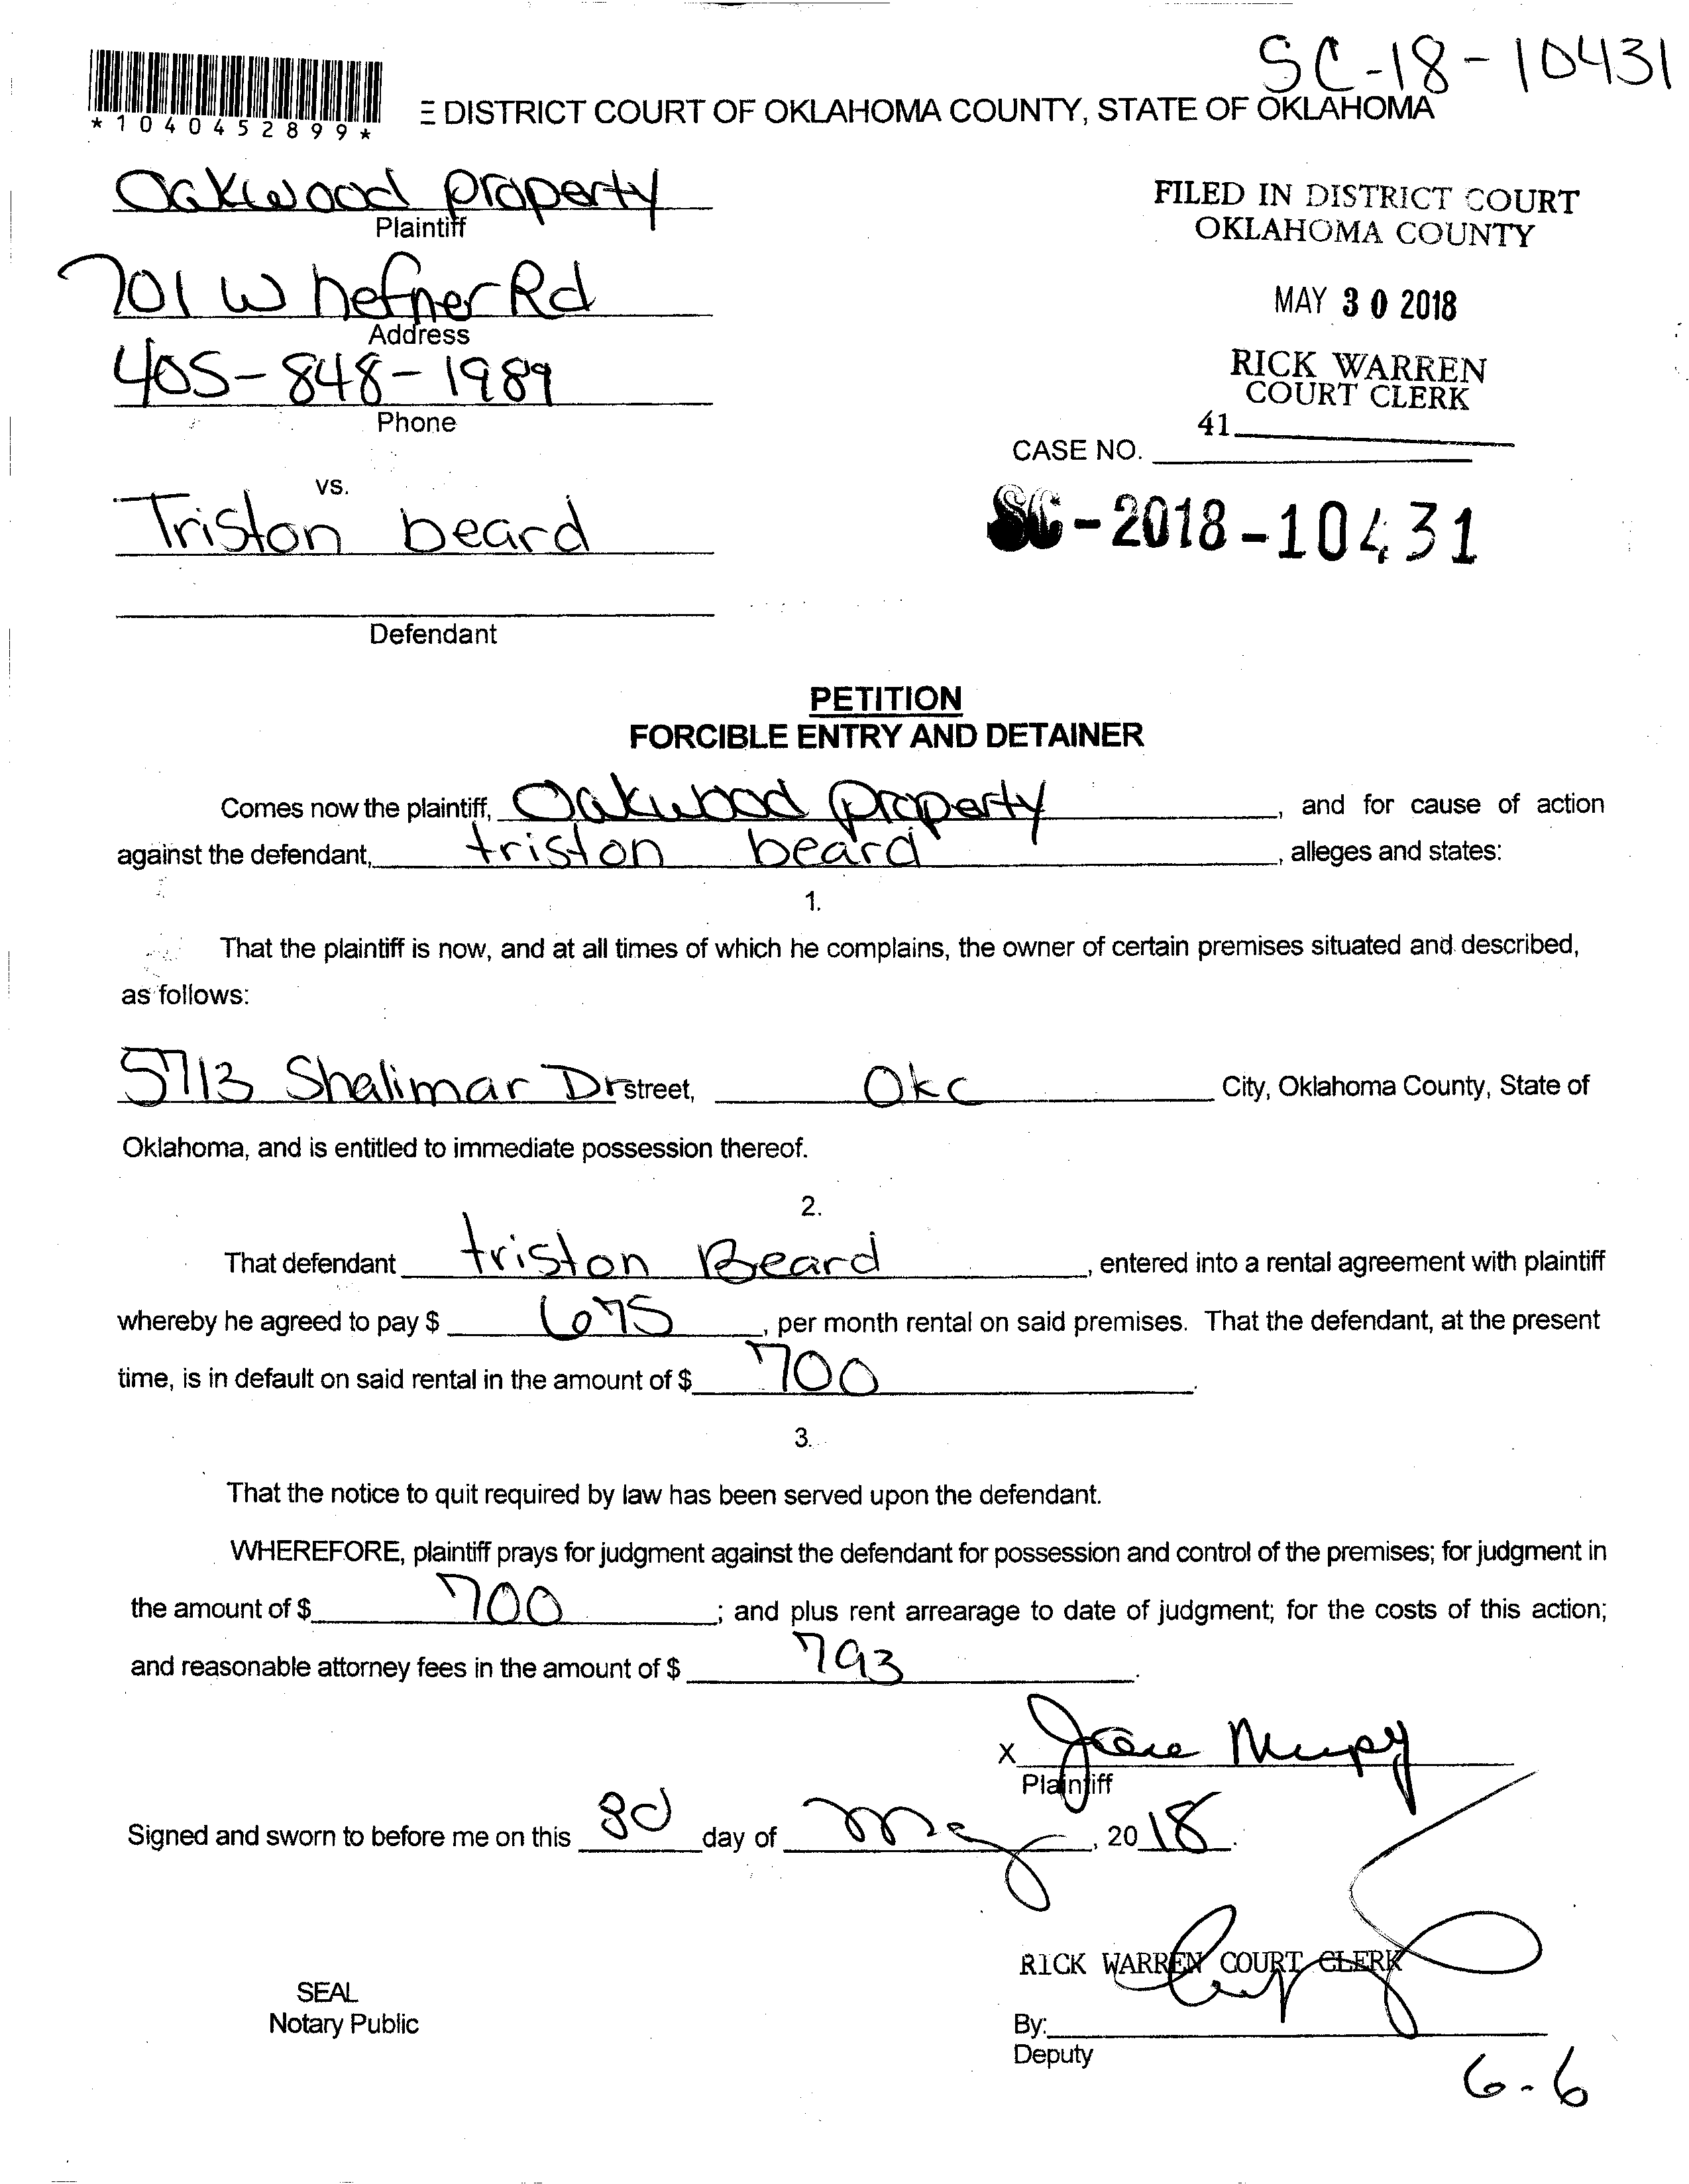 SC-18-10431
*1040452899*
E DISTRICT COURT OF OKLAHOMA COUNTY, STATE OF OKLAHOMA
Oakwood property
Plaintiff
701 W hefner Rd
Address
405-848-1989
Phone
FILED IN DISTRICT COURT
OKLAHOMA COUNTY
MAY 30 2018
RICK WARREN
COURT CLERK
41
CASE NO.
SC-2018-10431
vs.
Triston beard
Defendant
PETITION
FORCIBLE ENTRY AND DETAINER
Comes now the plaintiff, Oakwood property, and for cause of action
against the defendant, triston beard, alleges and states:
1.
That the plaintiff is now, and at all times of which he complains, the owner of certain premises situated and described,
as follows:
5713 Shalimar Dr street, Okc City, Oklahoma County, State of
Oklahoma, and is entitled to immediate possession thereof.
2.
That defendant triston Beard, entered into a rental agreement with plaintiff
whereby he agreed to pay $ 675, per month rental on said premises. That the defendant, at the present
time, is in default on said rental in the amount of $ 700.
3.
That the notice to quit required by law has been served upon the defendant.
WHEREFORE, plaintiff prays for judgment against the defendant for possession and control of the premises; for judgment in
the amount of $ 700; and plus rent arrearage to date of judgment; for the costs of this action;
and reasonable attorney fees in the amount of $ 793.
X
Plaintiff
Signed and sworn to before me on this 30 day of May, 2018.
RICK WARREN COURT CLERK
SEAL
Notary Public
By:
Deputy
6-6